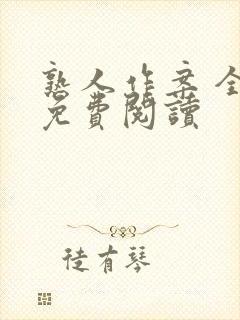 熟人作案全
免費閱讀
徒有琴